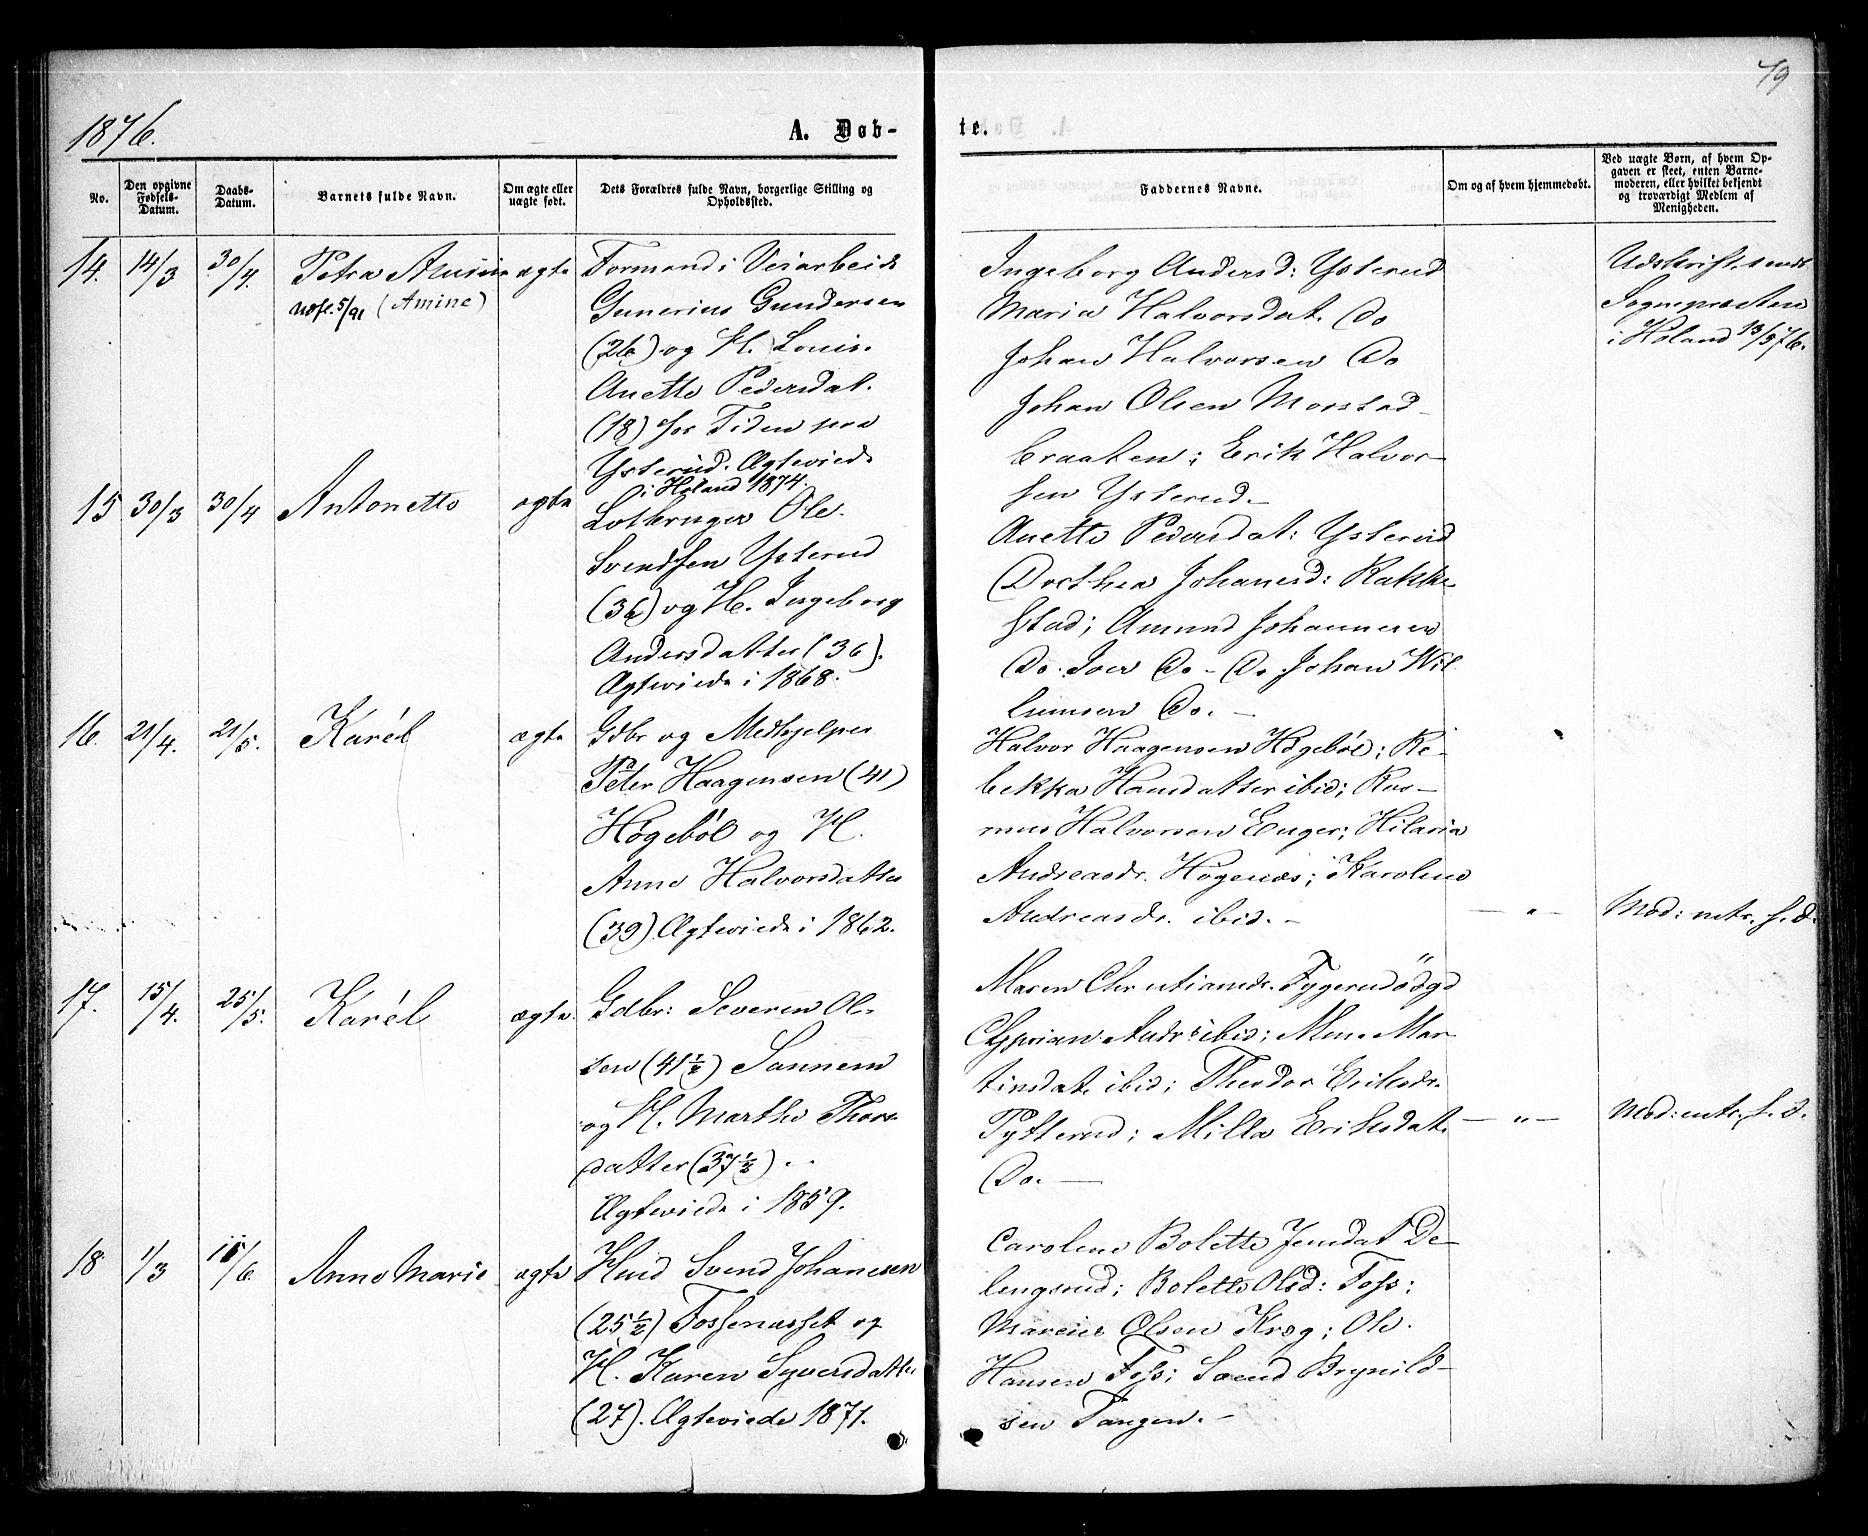 79
1876.
A. Døb-
te.
No.
Den opgivne Fødsels-Datum.
Daabs-Datum.
Barnets fulde Navn.
Om ægte eller uægte født.
Dets Forældres fulde Navn, borgerlige Stilling og Opholdssted.
Faddernes Navne.
Om og af hvem hjemmedøbt.
Ved uægte Børn, af hvem Opgaven er skeet, enten Barnemoderen, eller hvilket bekjendt og troværdigt Medlem af Menigheden.
14. 14/3 30/4. Petra Amine ægte
5/91 (Amine)
Formand i Veiarbeide
Gunerius Gundersen
(26) og H. Louise
Anette Pedersdat.
(18) for Tiden paa
Ysterud. Ægteviede
i Høland 1874.
Ingeborg Andersd: Ysterud
Maria Halvorsdat. Do
Johan Halvorsen Do
Johan Olsen Morstad-
braaten; Erik Halvor-
sen Ysterud.
Udskrift sendt
Sognepræsten
i Høland 13/5 76.
15 30/3 30/4 Antonette ægte
Ole
Svendsen Ysterud
(36) og H. Ingeborg
Andersdatter (36).
Ægteviede i 1868.
Anette Pedersdat: Ysterud
Dorthea Johanesd: Rakke
stad; Amund Johannesen
Do. Do - Do. Johan Wil
lumsen Do. -
16. 21/4. 21/5. Karél ægte
Gdbr og Medhjelper
Peter Haagensen (41)
Høgebøl og H.
Anne Halvorsdatter
(39). Ægteviede i 1862.
Halvor Haagensen Høgebøl; Re-
bekka Hansdatter ibid; Ras-
mus Halvorsen Enger; Hilaria
Andreasdr. Høgenæs; Karoline
Andreasdr. ibid. -
— " —
Mod: intr. s. d.
17. 15/4. 25/5. Karél ægte.
Gdbr: Severen Ol-
sen (41½) Sannem
og H. Marthe Thors-
datter (37½) . .
Ægteviede i 1859.
Maren Christiansdr.
Andrs ibid; Mar
tinsdat. ibid; Theodor Eriksdr.
Tytterud; Milla Eriksdat.
Do. —
— " —
Mod: intr. s. d.
18 1/3 11/6 Anne Marie ægte
Husd Svend Johanesen
(25½) Fossenæsset og
H. Karen Syversdatter
(27). Ægteviede 1871.
Caroline Bolette Jensdat De-
lingsrud; Bolette Olsd: Foss;
Marius Olsen Krog; Ole
Hansen Foss; Svend Brynild-
sen Tangen. -